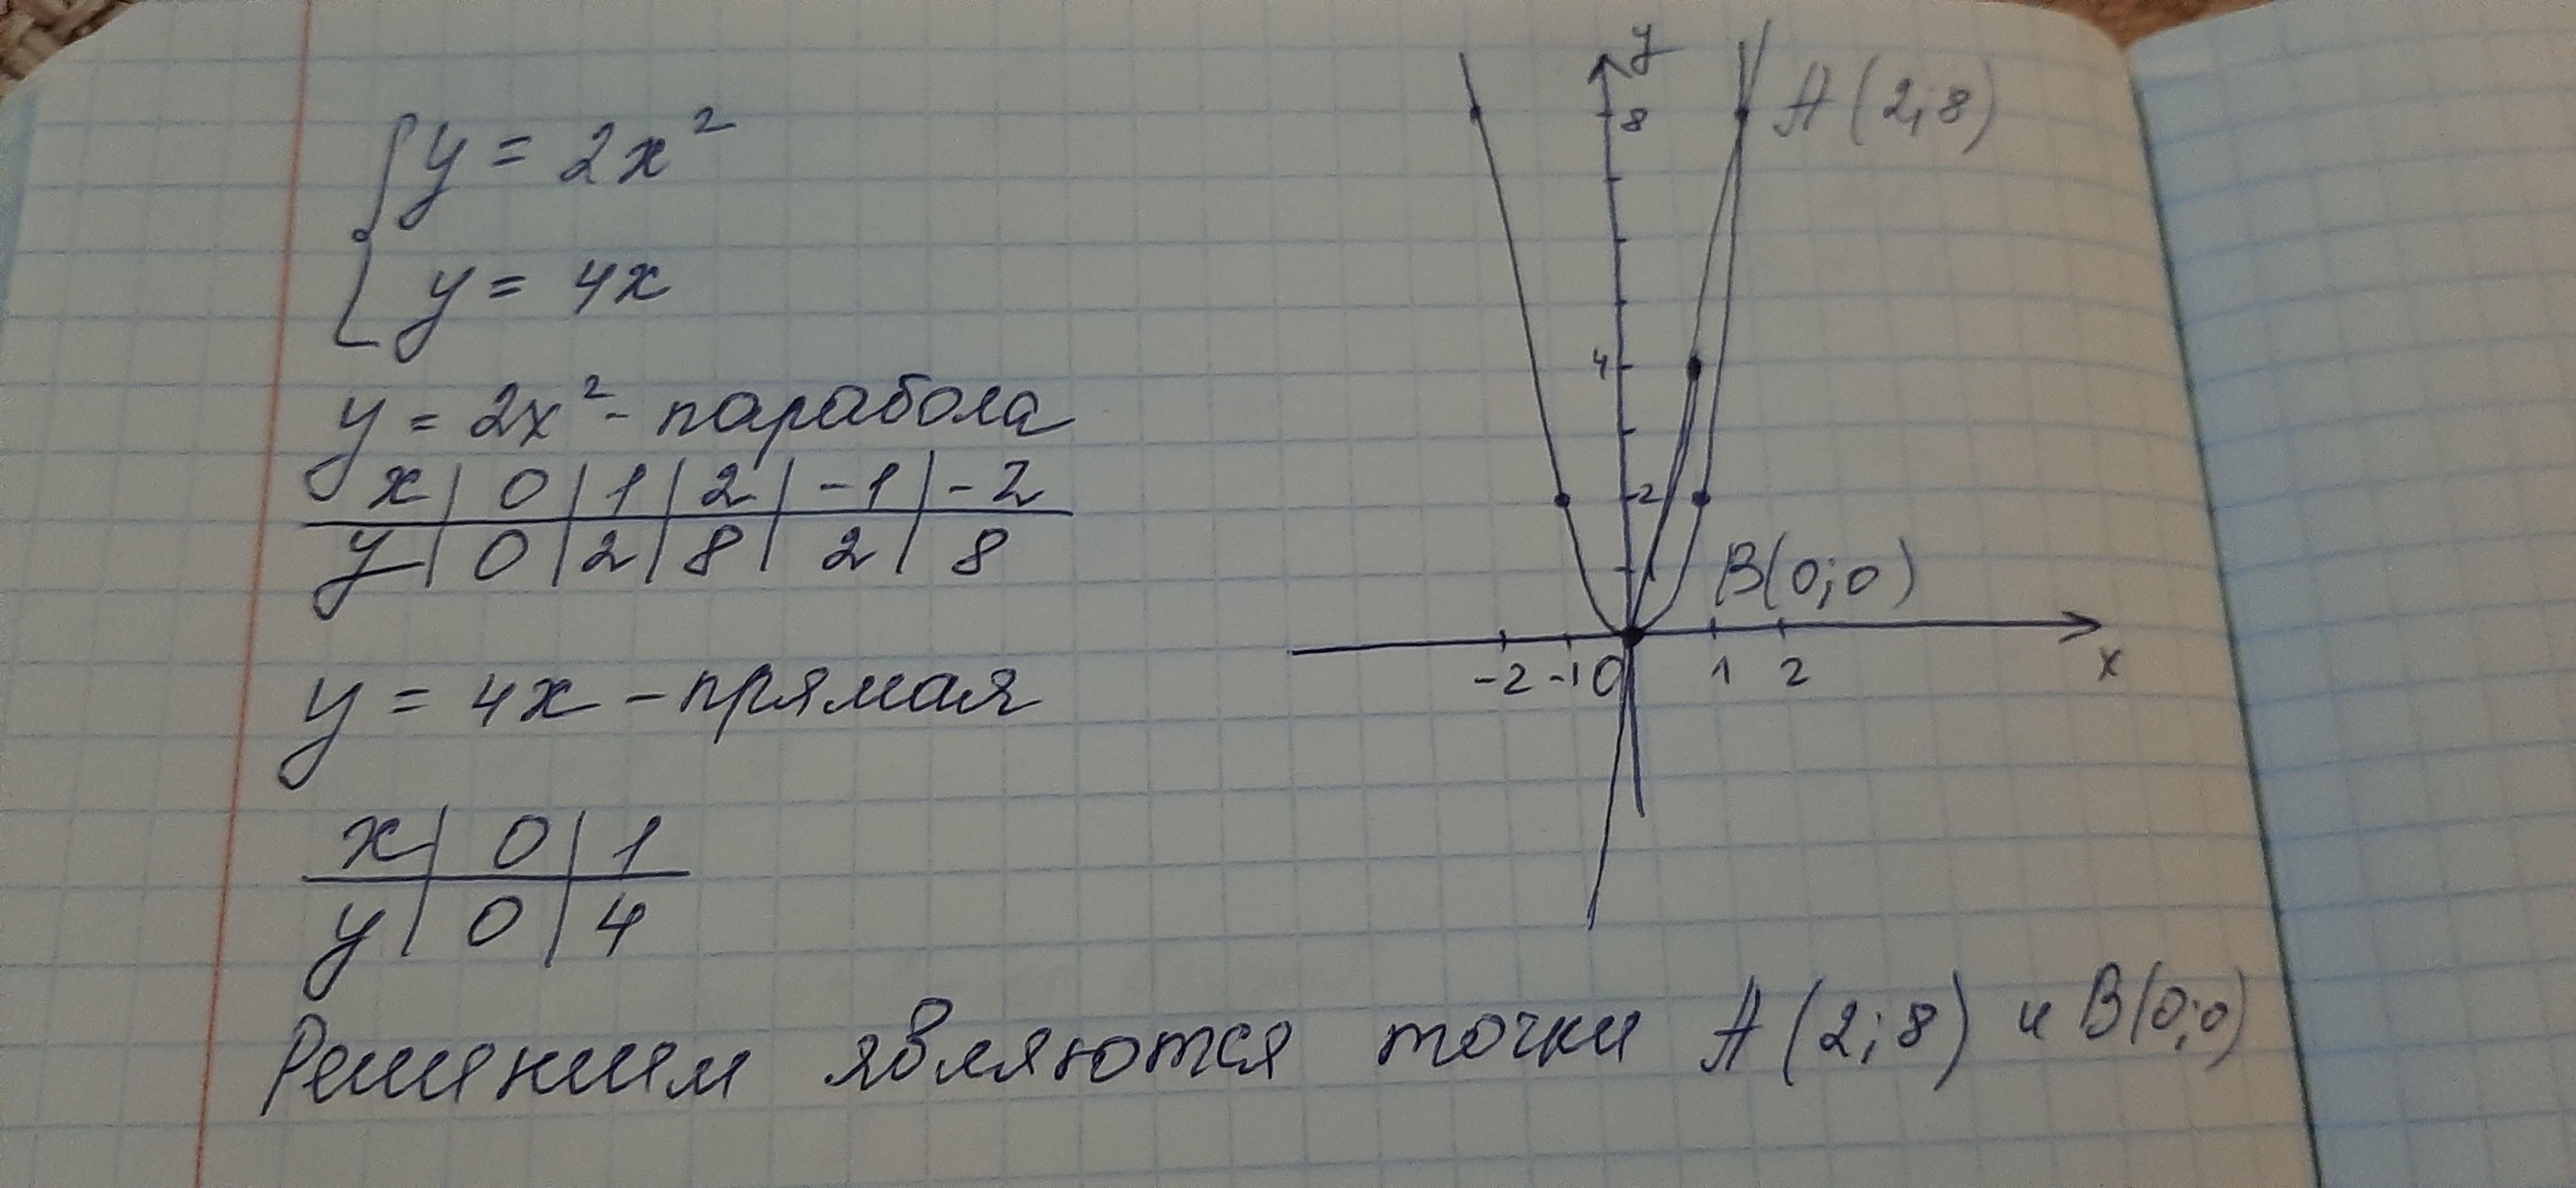 y = 2x²
y = 4x
y = 2x² - парабола
x | 0 | 1 | 2 | -1 | -2
y | 0 | 2 | 8 | 2 | 8
y = 4x - прямая
x | 0 | 1
y | 0 | 4
Решением являются точки A (2; 8) и B(0; 0)
y
8
A (2; 8)
4
2
B(0; 0)
-2 -1 0 1 2 x